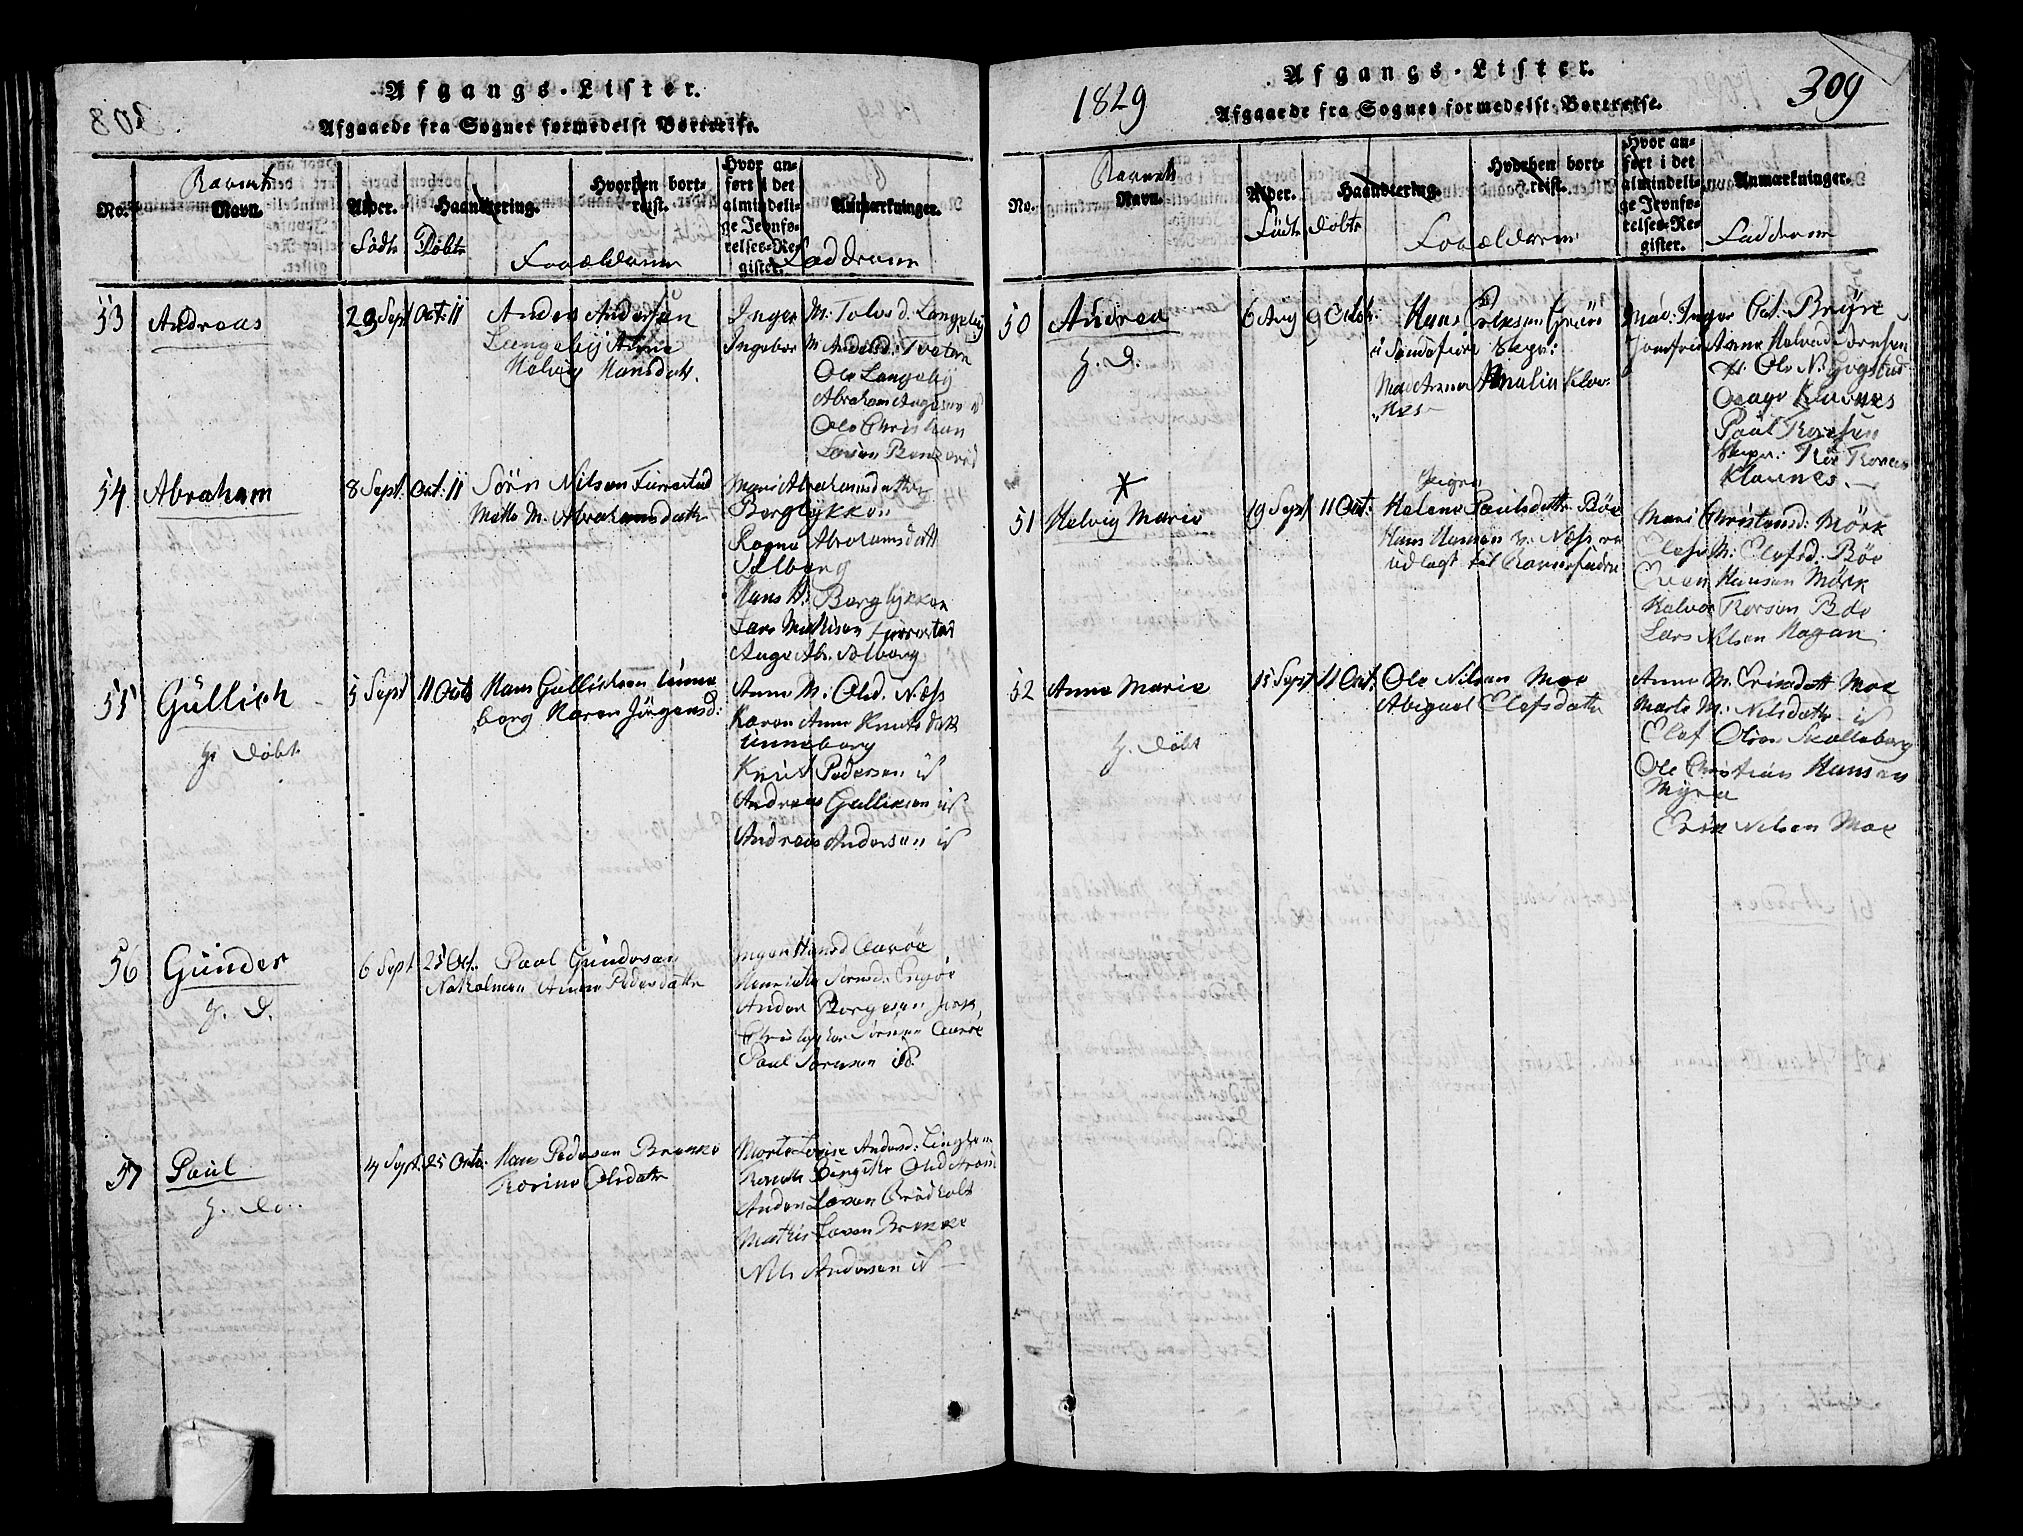 Afgangs-Lister.
Afgaaede fra Sognet formedelst Bortreise.
No. Navn. Alder. Haandtering. Hvorhen bortreist. Hvor anført i det almindelige Jevnførelses-Register. Anmærkninger.
Barnets
Födt Döbt Forældrene Faddrene
53 Andreas 29 Sept Oct: 11 Anders Andersen
Langeby Anne
Helvig Hansdatt.
Inger M. Tolvsd. Langeby
Ingebor M Andersd: Tveten
Ole Langeby
Abraham Aagesen
Ole Christian
Larsen
54 Abraham 8 Sept: Oct: 11 Sörn Nilsen Furustad
Mette M. Abrahamsdatt
Mari Abrahamsdatter
Berglykken
Ragne Abrahamsdatt
Solberg
Hans H. Berglykken
Lars Mathisen Furustad
Aage Ab. Solberg
55 Gullich 5 Sept 11 Octb Hans Gullichsen Unne
berg Karen Jörgensd:
H. Döbt
Anne M. Olsd. Næss
Karen Anne Knutsdatt
Unneberg
Knud Pedersen id
Andreas Gulliksen id
Andreas Andersen id
56 Gunder 6 Sept 25 Oct. Paul Gundersen
Anne Pedersdattr
H. D.
Inger Hansd Aaröe
Henriette Sörensd: Engöe
Anders Borgesen
Christopher Sörensen Aaröe
Paul Sörensen id
57 Paul 14 Sept. 25 Octo: Hans Pedersen Brekke
Torine Olsdattr
H. Do.
Marte Lovise Andersd:
Anders Larsen Brödholt
Mathis Larsen Brekke
Nils Andersen id
1829
Afgangs-Lister.
309
Afgaaede fra Sognet formedelst Bortreise.
No. Navn. Alder. Haandtering. Hvorhen bortreist. Hvor anført i det almindelige Jevnførelses-Register. Anmærkninger.
Barnets
Födt Döbt Forældrene Faddrene
50 Andrea 6 Aug 9 Octob: Hans
i Sandefiord Skipr:
Mad Anne Amalia Klav:
næs
H. D.
Mad: Inger Cat: Bryn
Jomfrue Anne Helvad Sörensen
Hr. Ole N. Gogstad
Aage Klavnes
Paul Thoresen
Skipr: Thor Thoresen
Klavnes
51 Helvig Marie 19 Sept 11 Oct: Pigen
Helene Paulsdattr Böe
Hans Hansen v. Næss er
udlagt til Barnefader
Mari Christensd: Mörk
Olefe M: Olefsd. Böe
Even Hansen Mörk
Halvor Thorsen Böe
Lars Nilsen Hagan
52 Anne Marie 15 Sept 11 Oct. Ole Nilsen Moe
Abigael Olefsdattr
H. Döbt
Anne M. Erixdatt Moe
Marte M: Nilsdattr id
Olef Olsen Skalleberg
Ole Christian Hansen
Myra
Erik Nilsen Moe